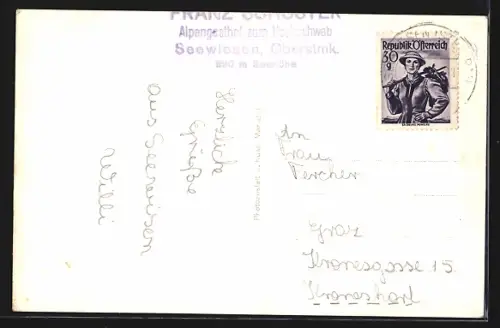 FRANZ SCHUSTER
Alpengasthof zum Hochschwab
Seewiesen, Oberstmk.
Herzliche
Grüße
aus Seewiesen
Willi
Republik Österreich
30
g
An
Frau
Percher
Graz
Kronesgasse 15
Kroneshof